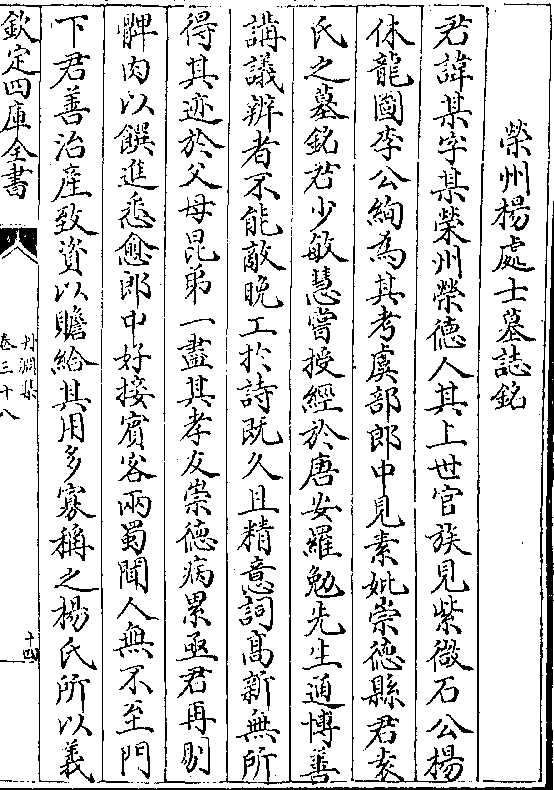 榮州楊處士墓誌銘
君諱某字某榮州榮德人其上世官族見紫微石公楊
休龍圖李公絢為其考虞部郎中見素妣崇德縣君袁
氏之墓銘君少敏慧嘗授經於唐安羅勉先生通博善
講議辨者不能敵晩工於詩既久且精意詞髙新無所
得其迹於父母昆弟一盡其孝友崇德病累亟君再刲
髀肉以饌進悉愈郎中好接賓客兩蜀聞人無不至門
下君善治産致資以贍給其用多寡稱之楊氏所以義
欽定四庫全書
丹淵集
卷三十八
十四